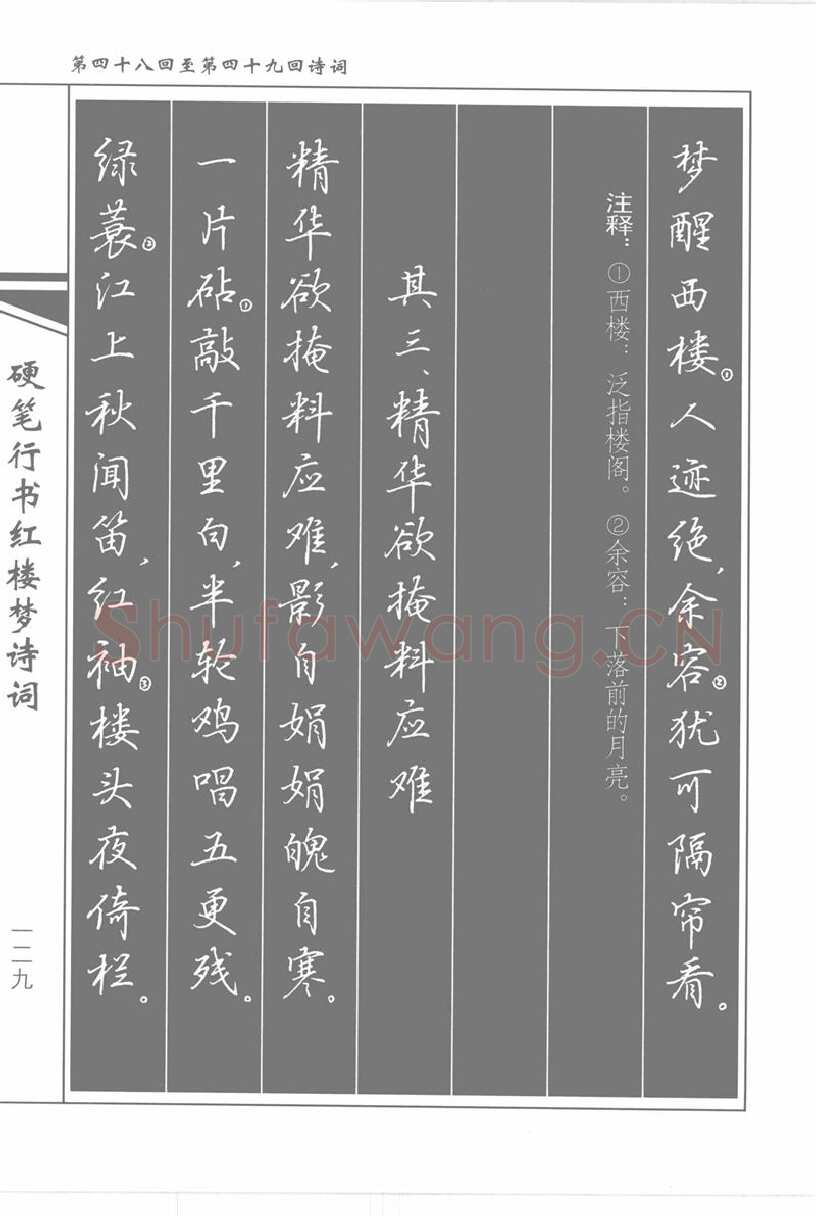 第四十八回至第四十九回诗词
梦醒西楼①人迹绝,余容②犹可隔帘看。
注释:①西楼:泛指楼阁。 ②余容:下落前的月亮。
其三、精华欲掩料应难
精华欲掩料应难,影自娟娟魄自寒。
一片砧①敲千里白,半轮鸡唱五更残。
绿蓑②江上秋闻笛,红袖③楼头夜倚栏。
硬笔行书红楼梦诗词
一二九
Shufawang.CN